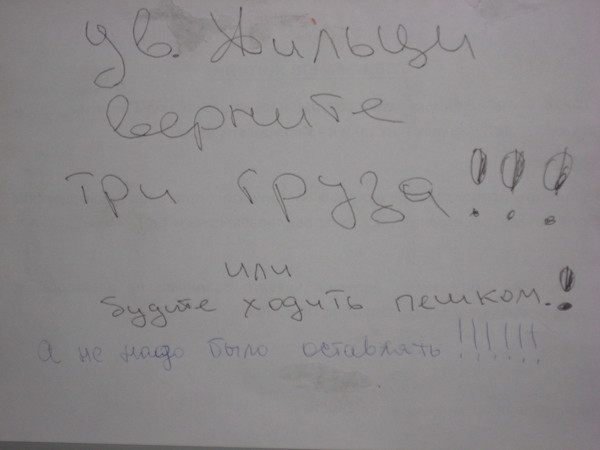 ув. Жильцы
верните
три груза!!!
или
будите ходить пешком.!
а не надо было оставлять!!!!!!